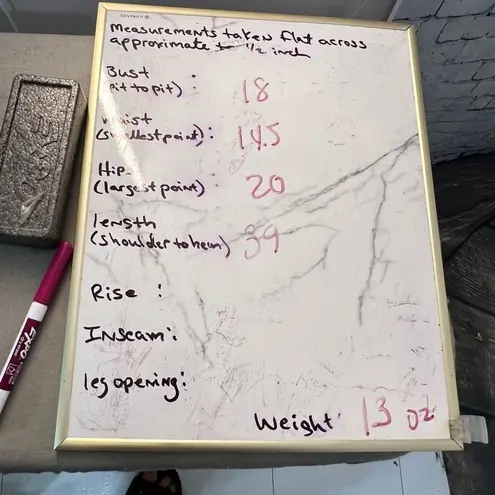 measurements taken flat across
approximate to 1/2 inch
Bust
(pit to pit) : 18
waist
(smallest point) : 14.5
Hip
(largest point) : 20
length
(shoulder to hem) 39
Rise :
Inseam :
leg opening :
Weight 13 oz
EXPO